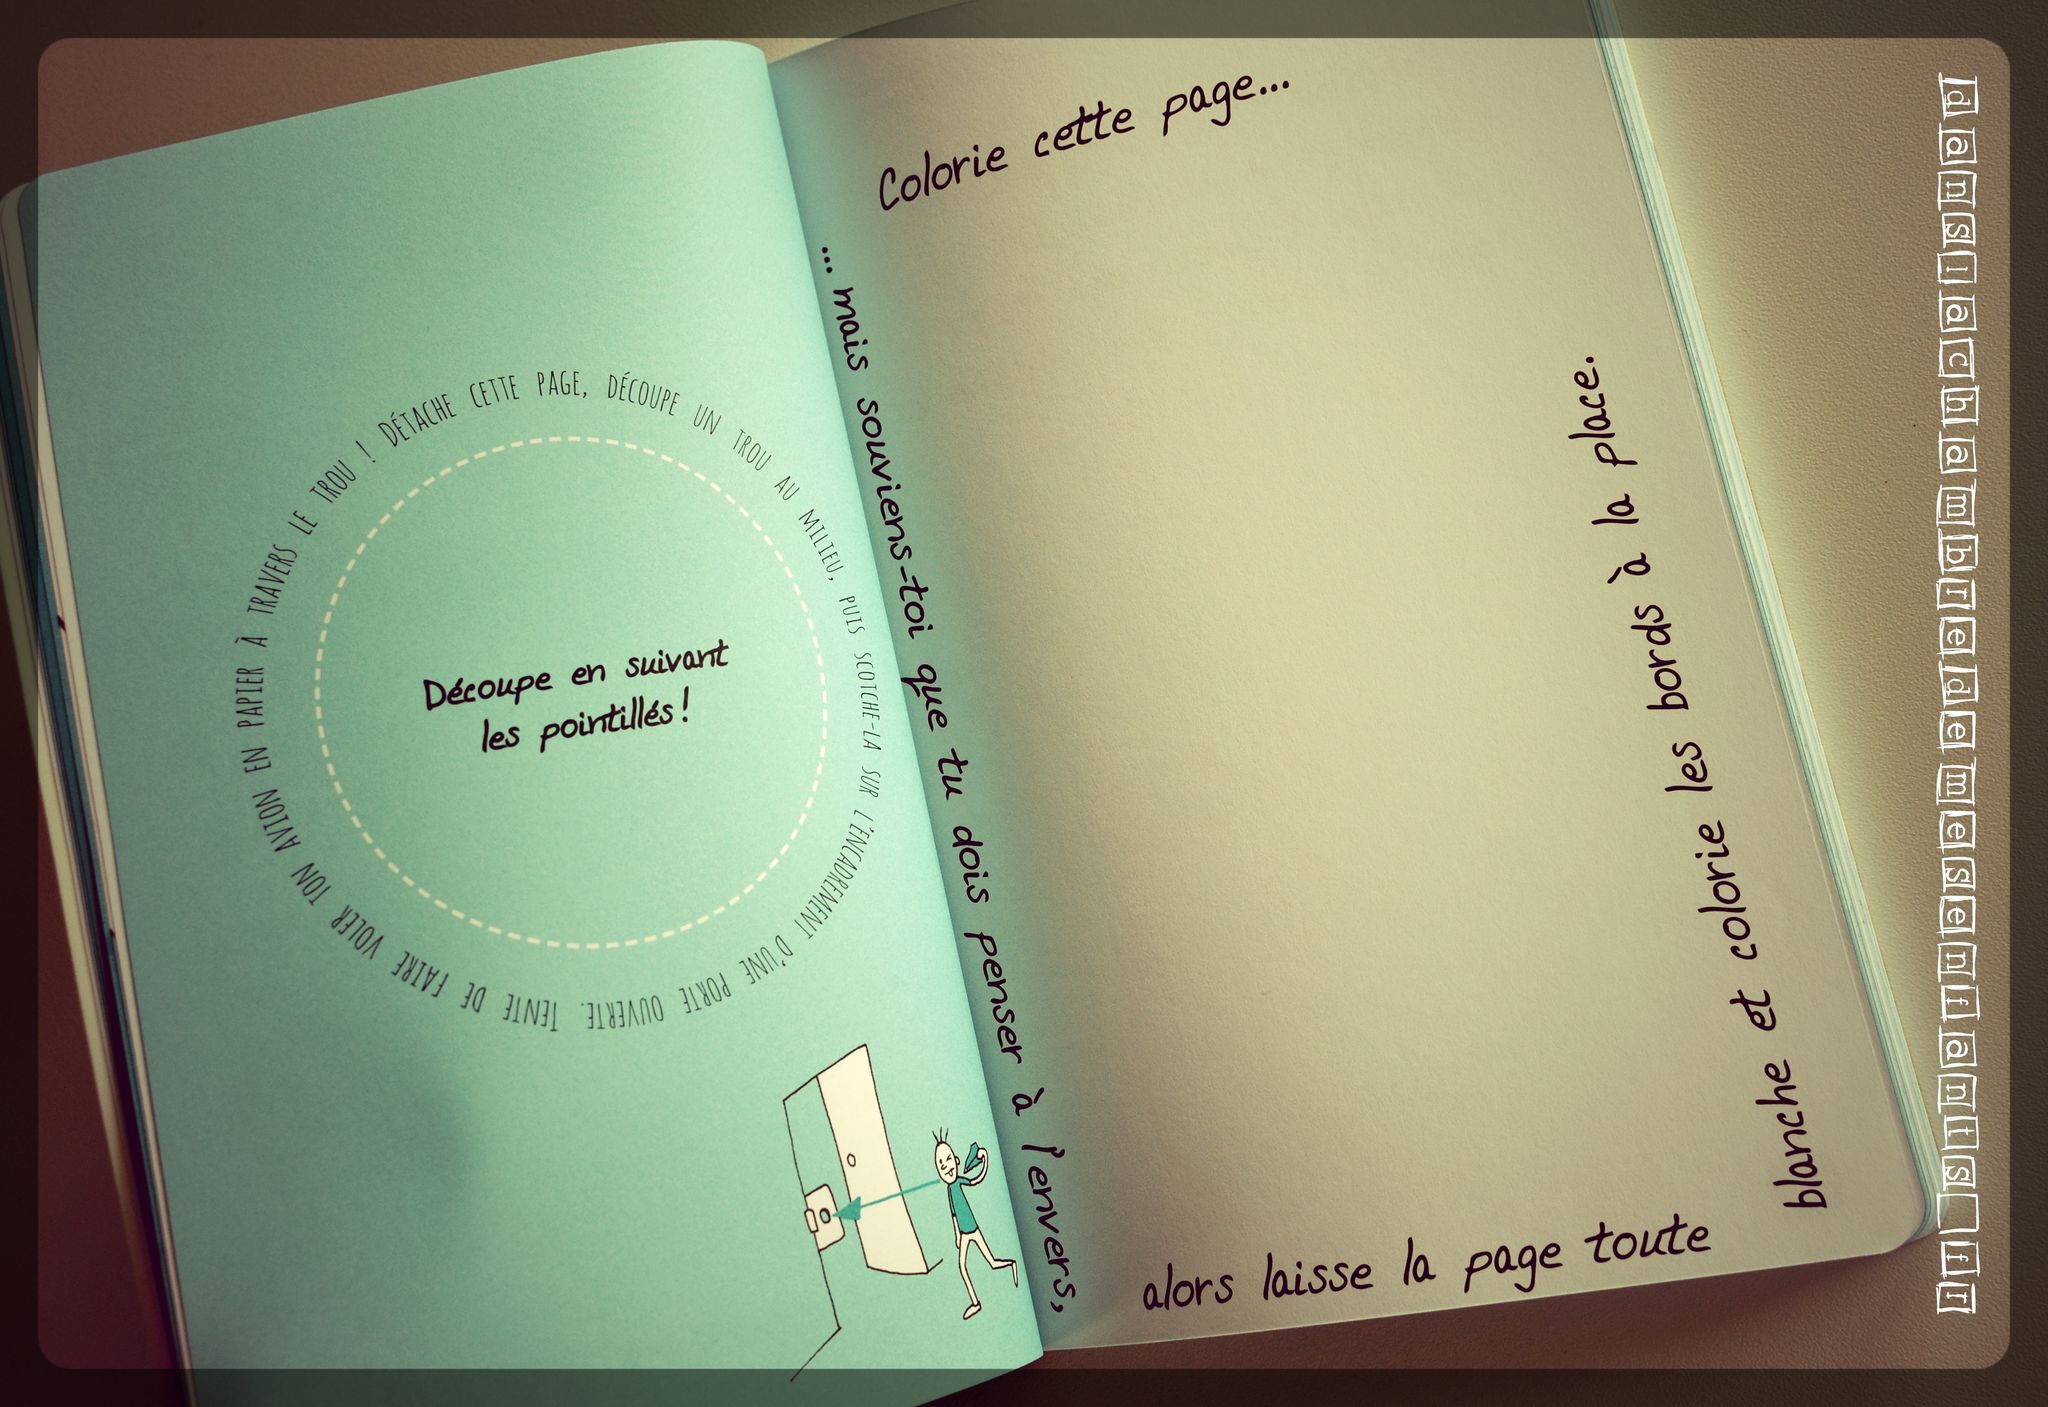 DÉTACHE CETTE PAGE, DÉCOUPE UN TROU AU MILIEU, PUIS SCOTCHE-LA SUR L'ENCADREMENT D'UNE PORTE OUVERTE. TENTE DE FAIRE VOLER TON AVION EN PAPIER À TRAVERS LE TROU !
Découpe en suivant
les pointillés !
Colorie cette page...
... mais souviens-toi que tu dois penser à l'envers,
alors laisse la page toute
blanche et colorie les bords à la place.
danslachambredemesenfants fr